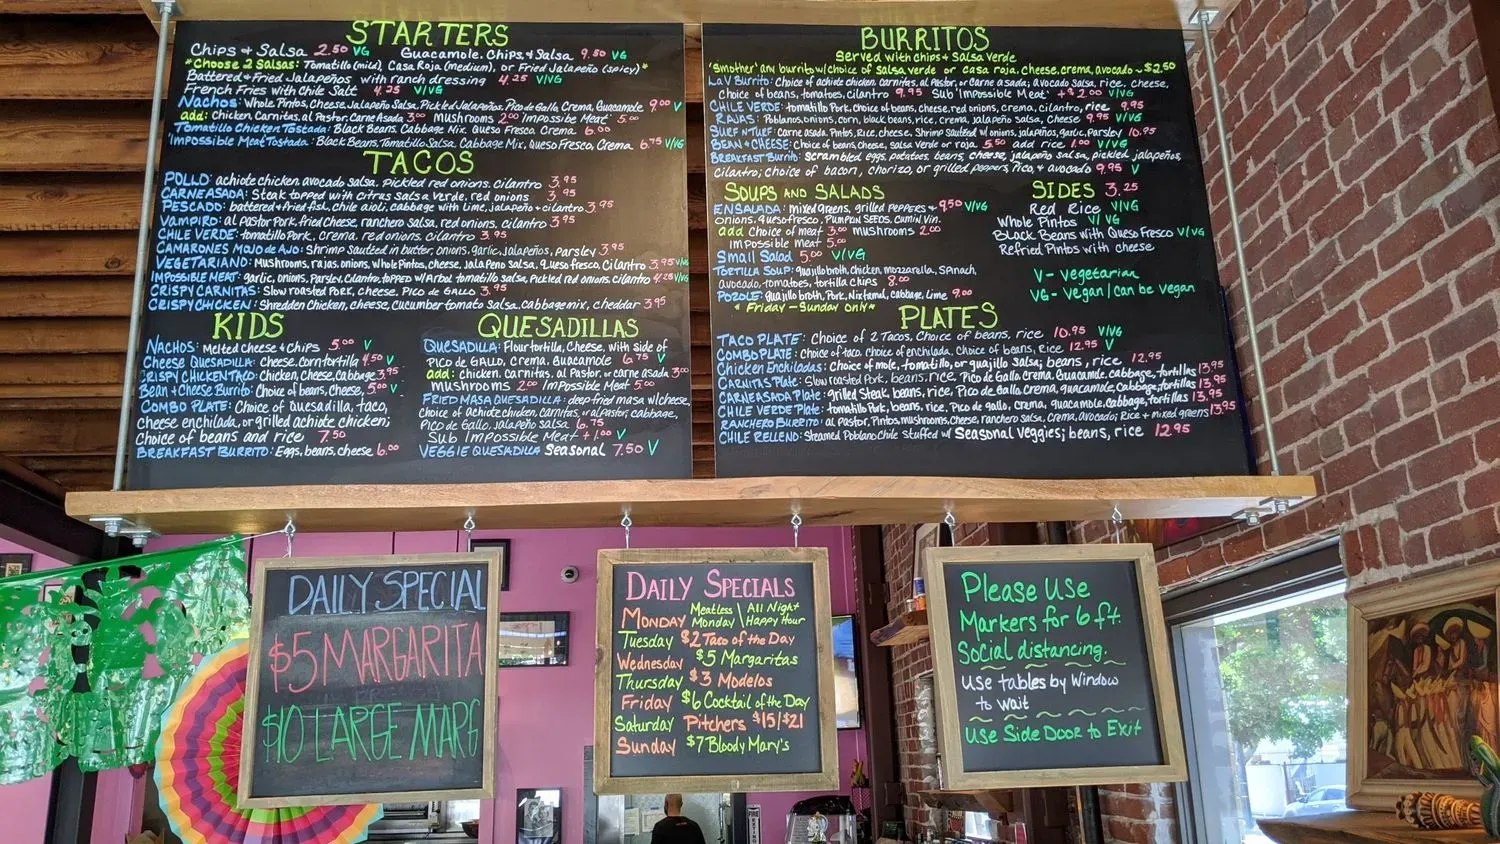 STARTERS
Chips & Salsa 2.50 VG Guacamole, Chips, & Salsa 9.50 VG
*Choose 2 Salsas: Tomatillo (mild), Casa Roja (medium), or Fried Jalapeño (spicy)*
Battered & Fried Jalapeños with ranch dressing 4.25 V/VG
French Fries with Chile Salt 4.25 V/VG
Nachos: Whole Pintos, Cheese, Jalapeño Salsa, Pickled Jalapeños, Pico de Gallo, Crema, Guacamole 9.00 V
add: Chicken, Carnitas, al Pastor, Carne Asada 3.00 Mushrooms 2.00 Impossible Meat 5.00
Tomatillo Chicken Tostada: Black Beans, Cabbage Mix, Queso Fresco, Crema 6.00
Impossible Meat Tostada: Black Beans, Tomatillo Salsa, Cabbage Mix, Queso Fresco, Crema 6.75 V/VG
TACOS
POLLO: achiote chicken, avocado salsa, Pickled red onions, cilantro 3.95
CARNE ASADA: Steak topped with citrus Salsa Verde, red onions 3.95
PESCADO: battered & fried fish, chile aioli, cabbage with lime, jalapeño & cilantro 3.95
VAMPIRO: al Pastor Pork, fried Cheese, ranchero Salsa, red onions, cilantro 3.95
CHILE VERDE: tomatillo Pork, Crema, red onions, cilantro 3.95
CAMARONES MOJO de AJO: Shrimp Sautéed in butter, onions, garlic, jalapeños, parsley 3.95
VEGETARIANO: Mushrooms, rajas, onions, whole Pintos, cheese, jalapeño Salsa, queso fresco, Cilantro 3.95 V/VG
IMPOSSIBLE MEAT: garlic, onions, Parsley, Cilantro, topped w/Arbol tomatillo salsa, Pickled red onions, cilantro 4.25 V/VG
CRISPY CARNITAS: Slow roasted Pork, cheese, Pico de GALLO 3.95
CRISPY CHICKEN: Shredden Chicken, cheese, Cucumber tomato Salsa, Cabbage mix, cheddar 3.95
KIDS
NACHOS: Melted Cheese & Chips 5.00 V
Cheese Quesadilla: Cheese, Corn tortilla 4.50 V
CRISPY CHICKEN TACO: Chicken, Cheese, Cabbage 3.95
Bean & Cheese Burrito: Choice of beans, Cheese, 5.00 V
COMBO PLATE: Choice of Quesadilla, taco,
Cheese enchilada, or grilled achiote chicken;
Choice of beans and rice 7.50
BREAKFAST BURRITO: Eggs, beans, cheese 6.00
QUESADILLAS
QUESADILLA: Flour tortilla, Cheese, with side of
PICO de GALLO, Crema, Guacamole 6.75 V
add: chicken, carnitas, al Pastor, or carne asada 3.00
mushrooms 2.00 Impossible Meat 5.00
FRIED MASA QUESADILLA: deep fried masa w/cheese,
Choice of achiote chicken, Carnitas, or al pastor; cabbage,
Pico de Gallo, jalapeño salsa 6.75
Sub Impossible Meat +1.00 V
VEGGIE QUESADILLA Seasonal 7.50 V
BURRITOS
Served with chips & Salsa Verde
'Smother' any burrito w/choice of salsa verde or casa roja, cheese, crema, avocado ~ $2.50
La V Burrito: Choice of achiote chicken, carnitas, al Pastor or Carne asada; avocado salsa, rice, cheese,
choice of beans, tomatoes, cilantro 9.95 Sub 'Impossible Meat' +$2.00 V/VG
CHILE VERDE: tomatillo Pork, choice of beans, cheese, red onions, crema, cilantro, rice 9.95
RAJAS: Poblanos, onions, corn, black beans, rice, crema, jalapeño salsa, cheese 9.95 V/VG
SURF N' TURF: Carne asada, Pintos, Rice, cheese, Shrimp Sautéed w/ onions, jalapeños, garlic, Parsley 10.95
BEAN & CHEESE: Choice of beans, Cheese, Salsa Verde or roja 5.50 add rice 1.00 V/VG
BREAKFAST Burrito: Scrambled eggs, potatoes, beans, cheese, jalapeño salsa, pickled jalapeños,
cilantro; choice of bacon, chorizo, or grilled peppers; Pico, & avocado 9.95 V
SOUPS AND SALADS
ENSALADA: mixed greens, grilled PEPPERS & 9.50 V/VG
onions, queso fresco, Pumpkin SEEDS, Cumin Vin.
add Choice of meat 3.00 mushrooms 2.00
Impossible Meat 5.00
Small Salad 5.00 V/VG
TORTILLA SOUP: guajillo broth, chicken, mozzarella, spinach,
avocado, tomatoes, tortilla chips 8.00
POZOLE: guajillo broth, Pork, Nixtamal, cabbage, lime 9.00
* Friday - Sunday only *
SIDES 3.25
Red Rice V/VG
Whole Pintos V/VG
Black Beans with Queso Fresco V/VG
Refried Pintos with cheese
V - Vegetarian
VG - Vegan / can be Vegan
PLATES
TACO PLATE: Choice of 2 Tacos, Choice of beans, rice 10.95 V/VG
COMBO PLATE: Choice of taco, choice of enchilada, Choice of beans, Rice 12.95 V
Chicken Enchiladas: Choice of mole, tomatillo, or guajillo salsa; beans, rice 12.95
CARNITAS Plate: Slow roasted Pork, beans, rice, Pico de Gallo, Crema, Guacamole, cabbage, tortillas 13.95
CARNE ASADA Plate: grilled Steak, beans, rice, Pico de Gallo, Crema, guacamole, Cabbage, tortillas 13.95
CHILE VERDE Plate: tomatillo Pork, beans, rice, Pico de gallo, Crema, guacamole, cabbage, tortillas 13.95
RANCHERO BURRITO: al Pastor, Pintos, mushrooms, Cheese, ranchero salsa, crema, avocado; Rice & mixed greens 13.95
CHILE RELLENO: Steamed Poblano Chile Stuffed w/ Seasonal Veggies; beans, rice 12.95
DAILY SPECIAL
$5 MARGARITA
$10 LARGE MARG
DAILY SPECIALS
MONDAY Meatless Monday | All Night Happy Hour
Tuesday $2 Taco of the Day
Wednesday $5 Margaritas
Thursday $3 Modelos
Friday $6 Cocktail of the Day
Saturday Pitchers $15/$21
Sunday $7 Bloody Mary's
Please Use
Markers for 6 ft.
Social distancing.
Use tables by Window
to wait
Use Side Door to Exit